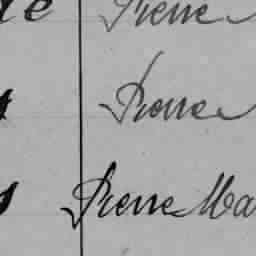 Pierre
Pierre
Pierre Ma